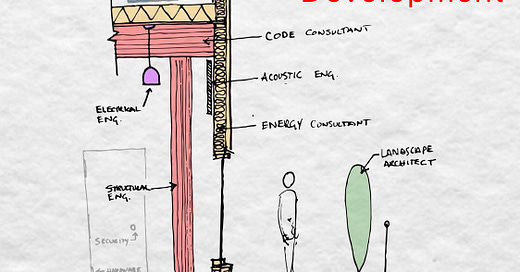 Development
CODE CONSULTANT
ACOUSTIC ENG.
ELECTRICAL
ENG.
ENERGY CONSULTANT
LANDSCAPE
ARCHITECT
STRUCTURAL
ENG.
SECURITY
HARDWARE